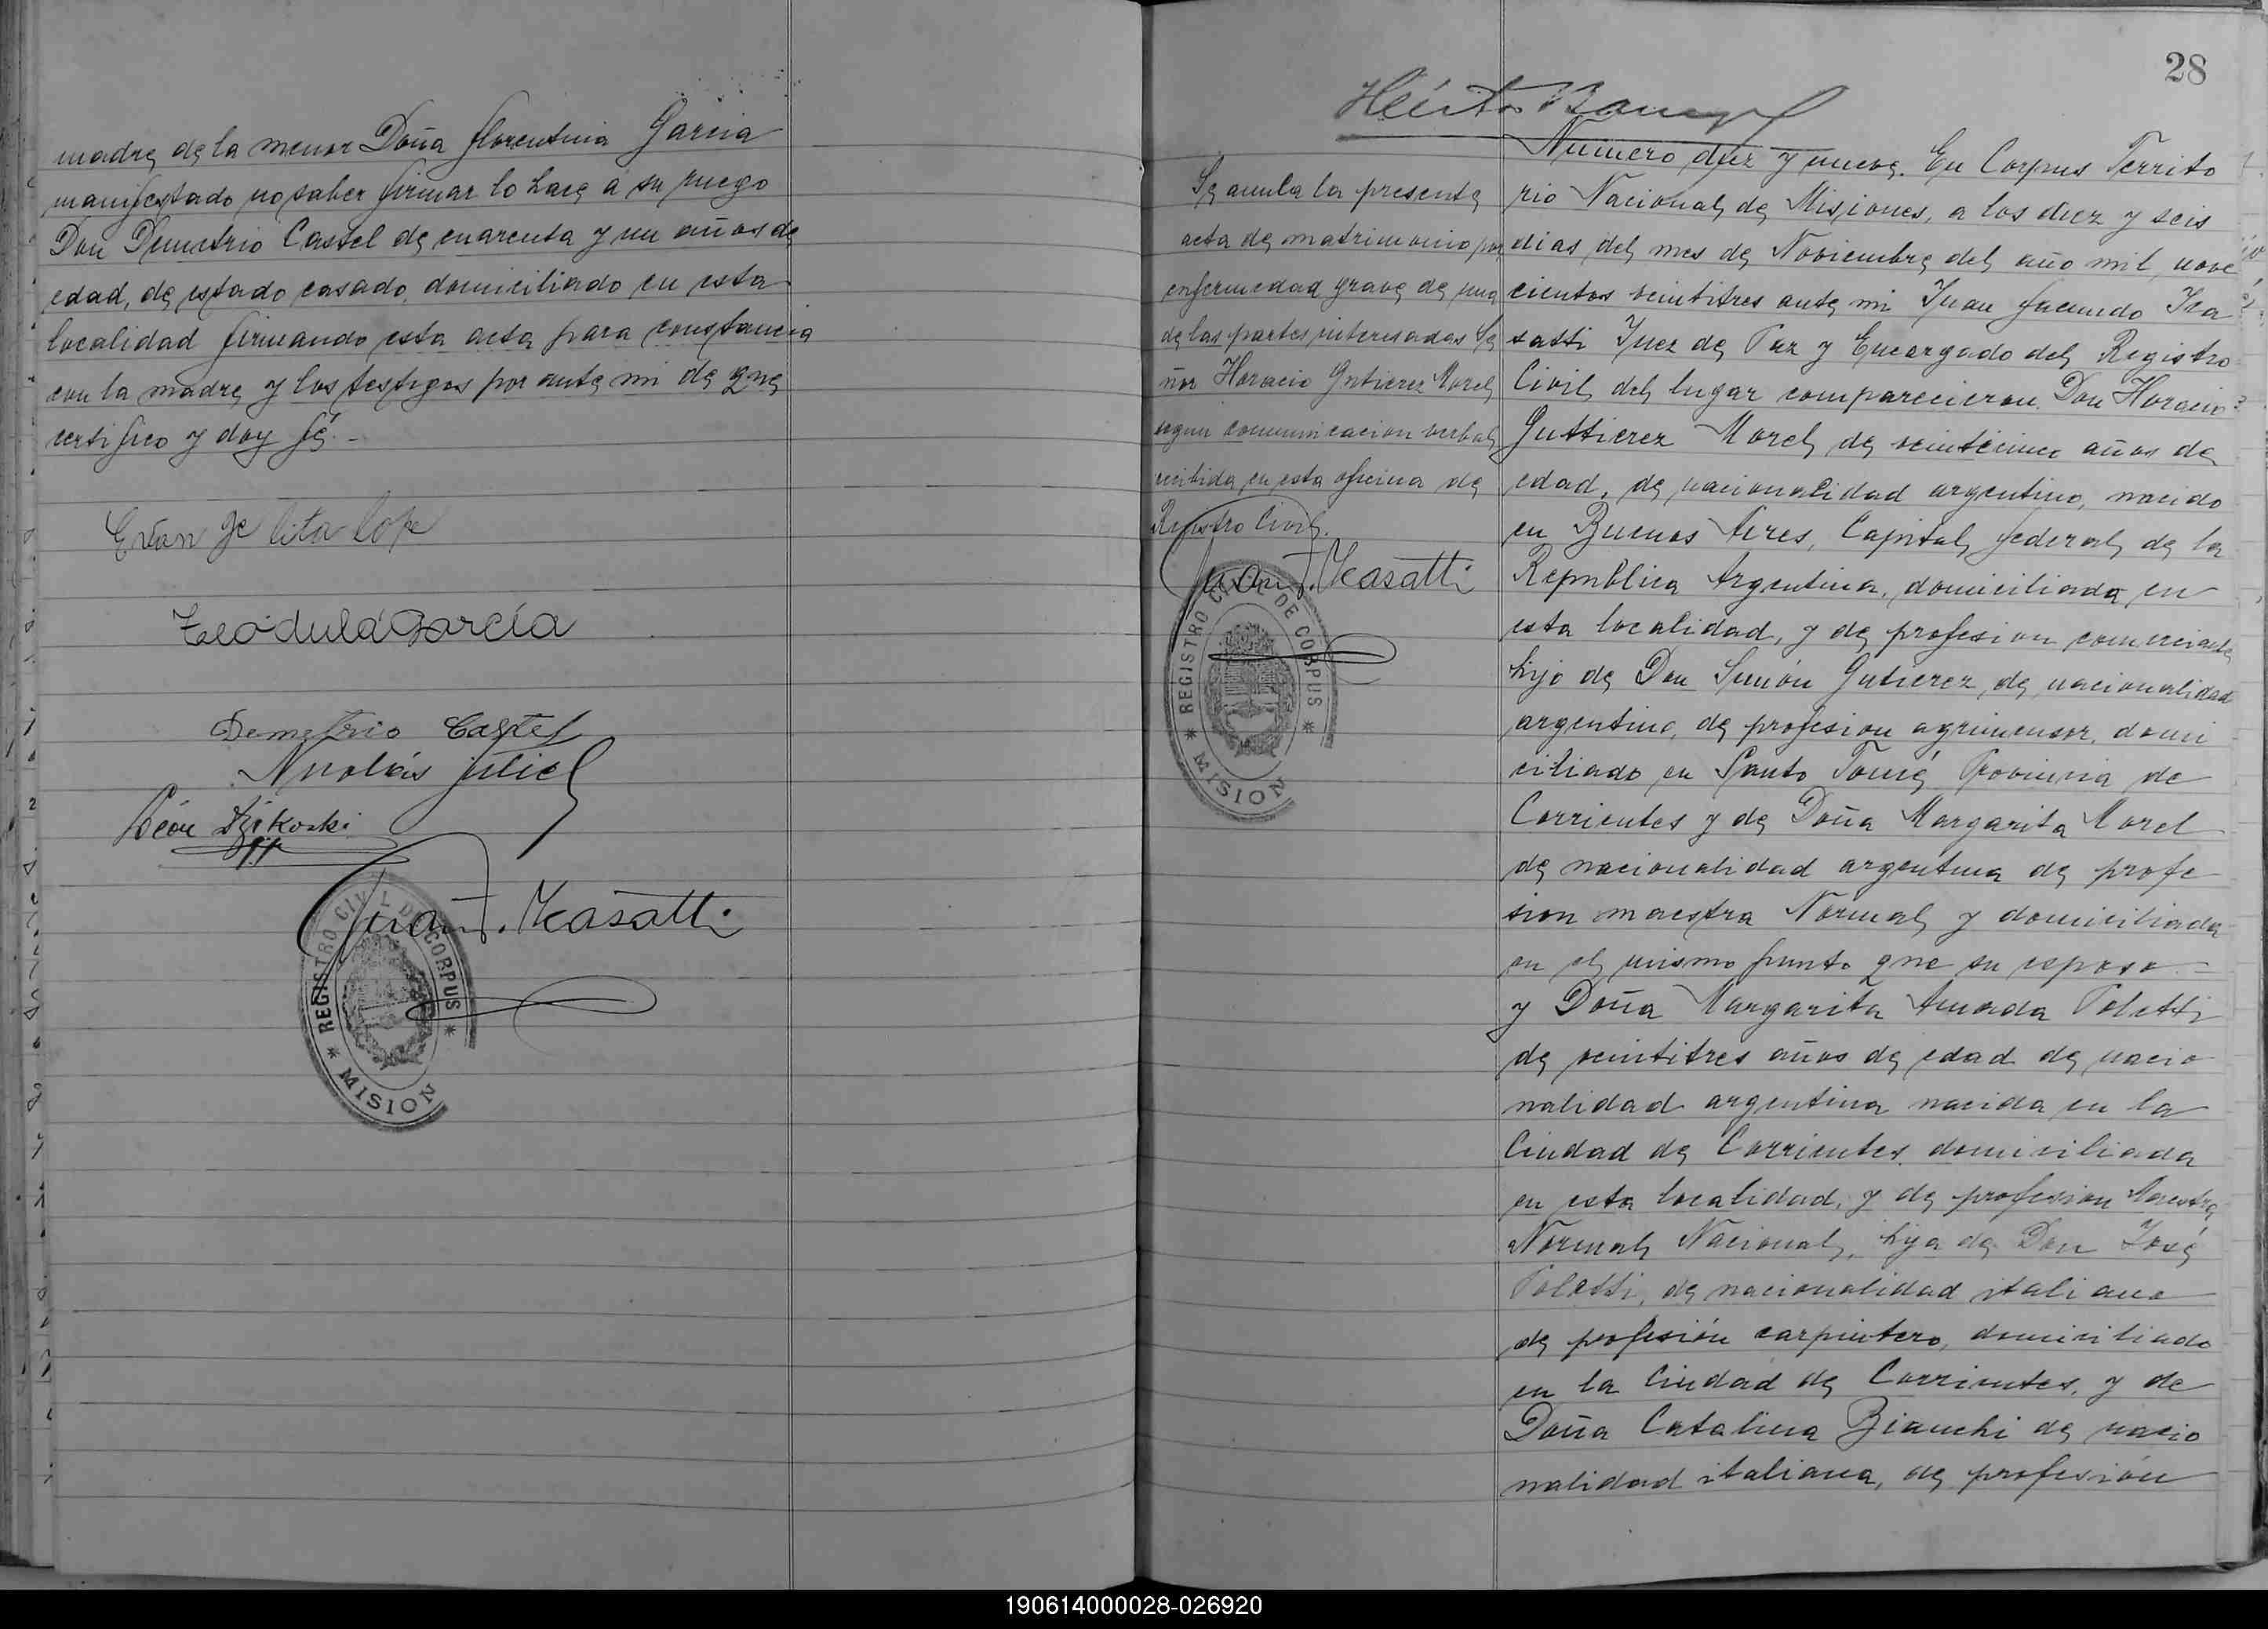 madre de la menor Doña Florentina Garcia
manifestado no saber firmar lo hace á su ruego
Don Demetrio Castel de cuarenta y un años de
edad, de estado casado, domiciliado en esta
localidad firmando esta acta para constancia
con la madre y los testigos por ante mi de que
certifico y doy fé.-
Evan ge lita lope
Teódula García
Demetrio Castel
Nicolás Juliel
León
Juan F.
REGISTRO CIVIL DE CORPUS * MISION *
28
Numero diez y nueve. En Corpus Territo
rio Nacional de Misiones, a los diez y seis
dias del mes de Noviembre del año mil nove
cientos veintitres ante mi Juan Facundo
Juez de Paz y Encargado del Registro
Civil del lugar comparecieron Don Horacio
Guttierez Morel, de veinticinco años de
edad, de nacionalidad argentino, nacido
en Buenos Aires, Capital federal de la
Republica Argentina, domiciliado en
esta localidad, y de profesion comerciante
hijo de Don Simón Gutierez, de nacionalidad
argentino, de profesion agrimensor, domi
ciliado en Santo Tomé Provincia de
Corrientes y de Doña Margarita Morel
de nacionalidad argentina de profe
sion maestra Normal y domiciliada
en el mismo punto que su esposo.-
y Doña Margarita Amada Poletti
de veintitres años de edad de nacio
nalidad argentina nacida en la
Ciudad de Corrientes, domiciliada
en esta localidad, y de profesion Maestra
Normal Nacional, hija de Don José
Poletti, de nacionalidad italiano
de profesión carpintero, domiciliado
en la Ciudad de Corrientes, y de
Doña Catalina Bianchi de nacio
nalidad italiana, de profesión
Se anula la presente
acta de matrimonio por
enfermedad grave de una
de las partes interesadas Se
ñor Horacio Gutierez Morel
segun comunicacion verbal
recibida en esta oficina de
Registro Civil.
Juan F.
REGISTRO CIVIL DE CORPUS * MISION *
190614000028-026920